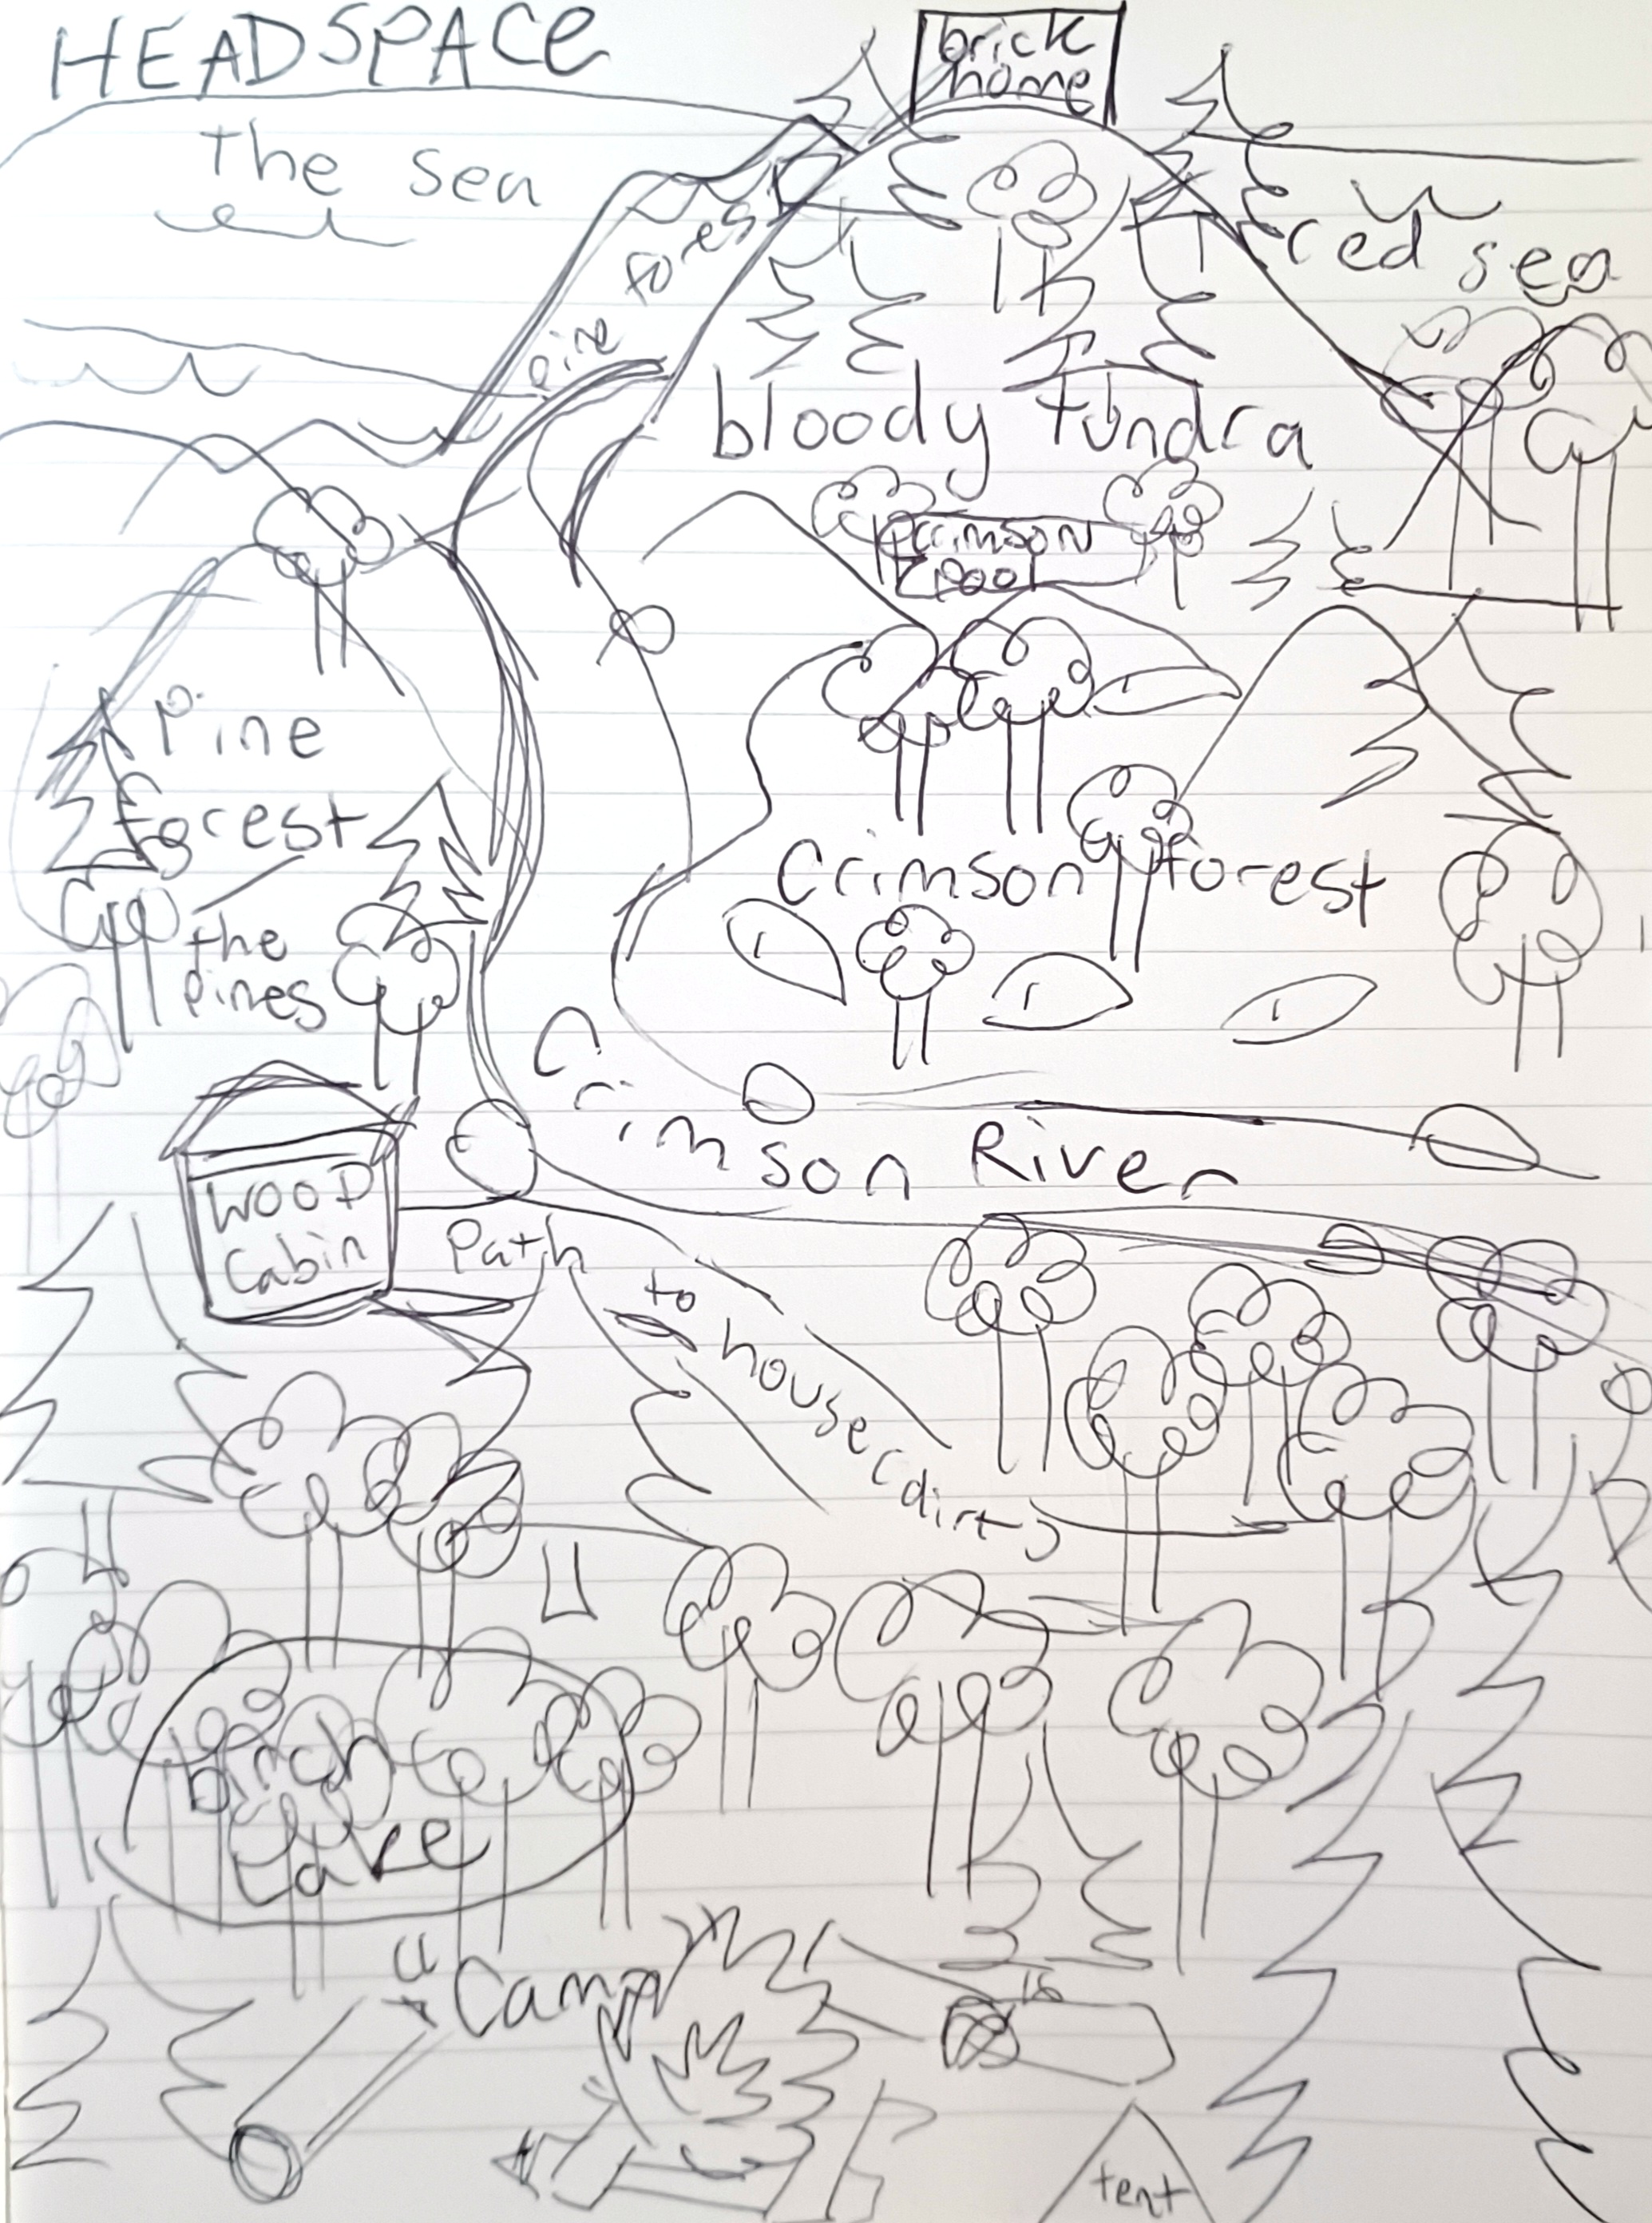 HEADSPACE
brick
home
the sea
red sea
pine fores
bloody tundra
Crimson
pool
Pine
forest
the
pines
Crimson forest
Crimson River
WOOD
Cabin
Path to house (dirt)
birch
Lake
Camp
tent